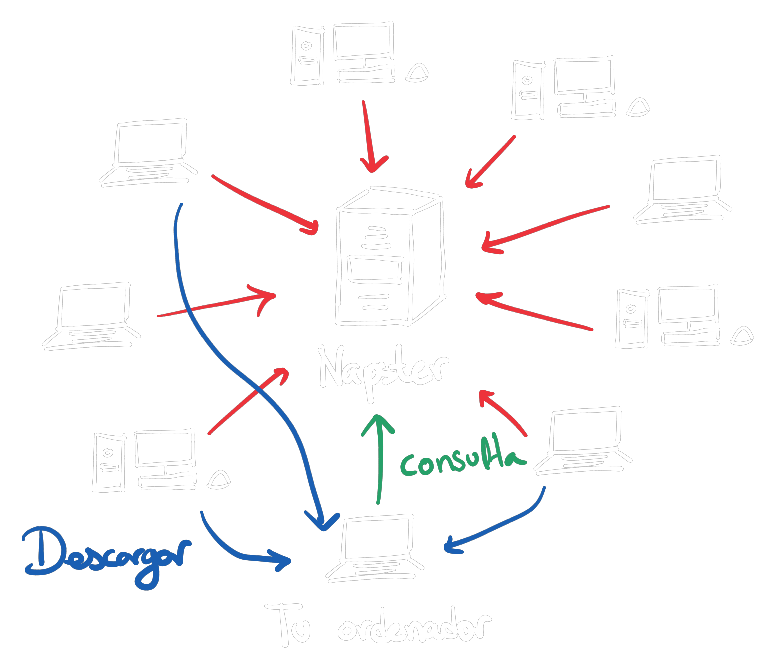 Napster
consulta
Descargar
Tu ordenador